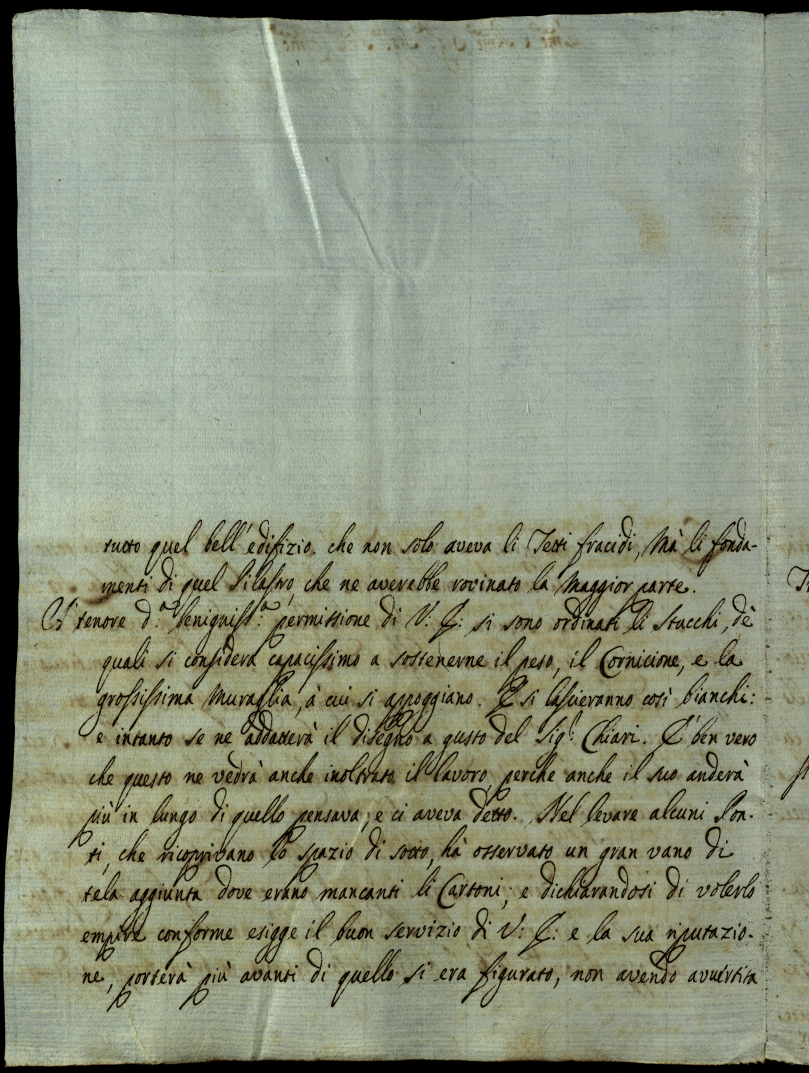 tutto quel bell'edifizio. che non solo aveva li Tetti fracidi, Mà li fonda-
menti di quel Pilastro, che ne averebbe rovinato la Maggior parte.
tenore d.ª Benigniss.ª permissione di V: E: si sono ordinati li Stucchi, de'
quali si considera capacissimo a sostenerne il peso, il Cornicione, e la
grossissima Muraglia, à cui si appoggiano. E si lascieranno così bianchi:
e intanto se ne addatterà il disegno a gusto del Sig.r Chiari. E' ben vero
che questo ne vedrà anche inoltrato il lavoro, perche anche il suo anderà
più in lungo di quello pensava, e ci aveva detto. Nel levare alcuni Pon-
ti, che ricoprivano lo spazio di sotto, hà osservato un gran vano di
tela aggiunta dove erano mancanti li Cartoni; e dichiarandosi di volerlo
empire conforme esigge il buon servizio di V: E: e la sua riputazio-
ne, porterà più avanti di quello si era figurato, non avendo avvertita